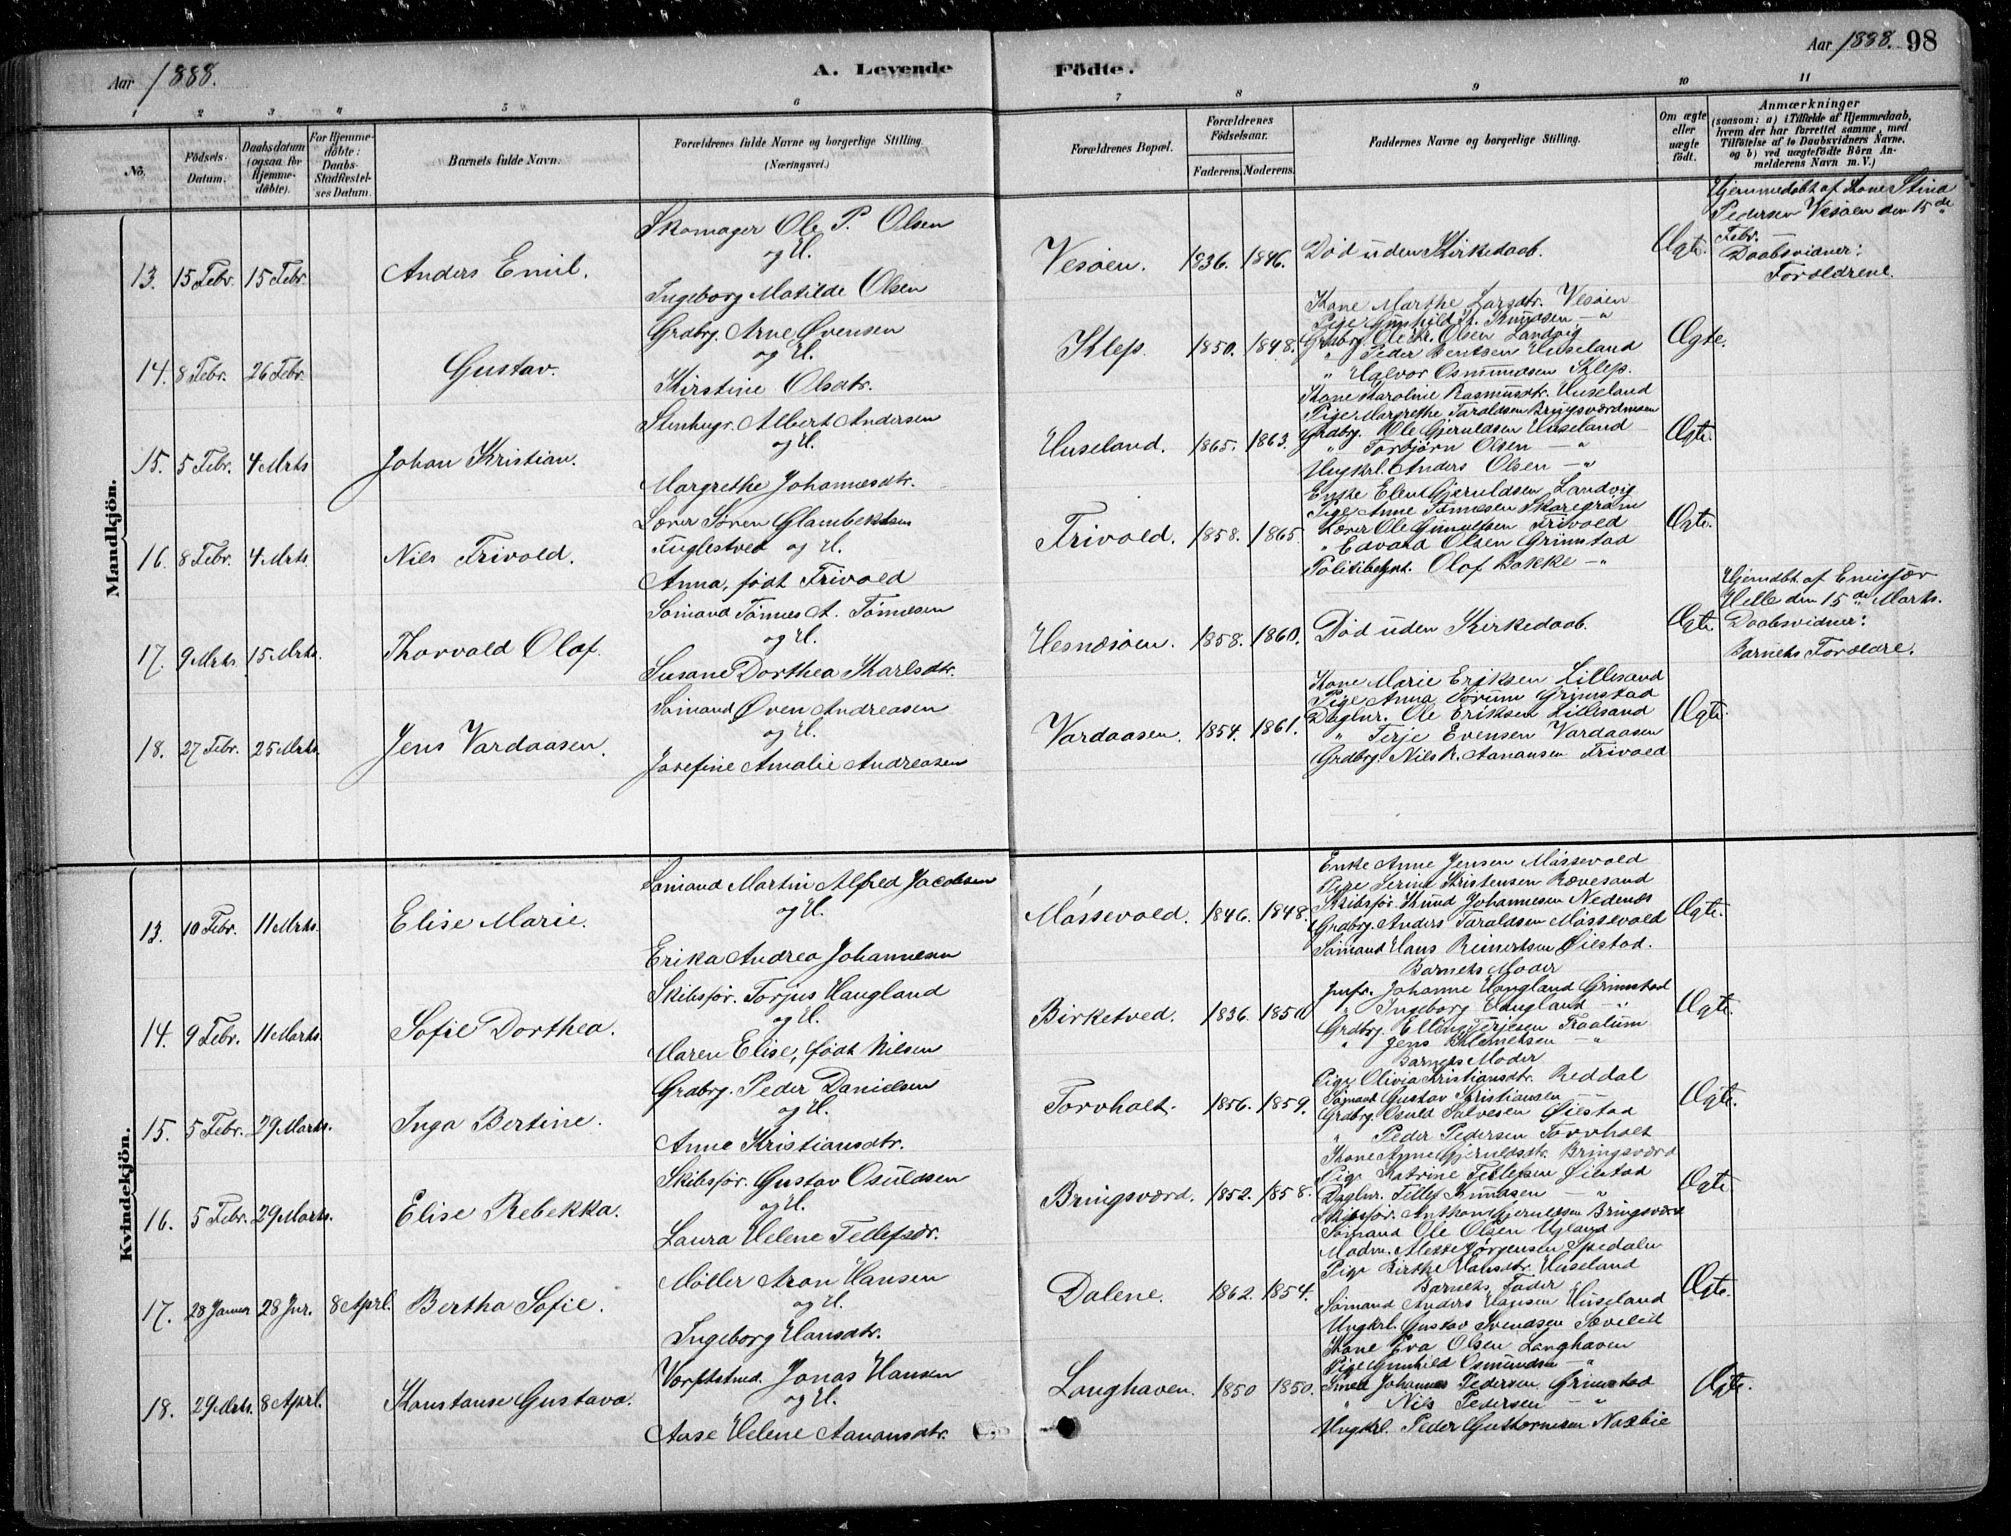 Aar 1888.
A. Levende Födte.
Aar 1888. 98
1 2 3 4 5 6 7 8 9 10 11
No.
Födsels-Datum.
Daabsdatum (ogsaa for Hjemme-döbte).
For Hjemme-döbte: Daabs-Stadfæstel-ses Datum.
Barnets fulde Navn.
Forældrenes fulde Navne og borgerlige Stilling.
(Næringsvei.)
Forældrenes Bopæl.
Forældrenes Födselsaar.
Faderens. Moderens.
Faddernes Navne og borgerlige Stilling.
Om ægte eller uægte födt.
Anmærkninger
(saasom: a) i Tilfælde af Hjemmedaab, hvem der har forrettet samme, med Tilföielse af to Daabsvidners Navne, og b) ved uægtefödte Börn An-melderens Navn m. V.)
Mandkjön.
13. 15 Febr. 15 Febr. Anders Emil.
Skomager Ole P. Olsen
og H.
Ingeborg Matilde Olsen
Vesøen. 1836. 1846.
Død uden Kirkedaab.
Ægte.
Hjemmedøbt af Kone Stina
Pedersen Vesøen den 15de
Febr.
Daabsvidner:
Forældrene.
14. 8 Febr. 26 Febr. Gustav.
Grdbrg. Arne Øvensen
og H.
Kirstine Olsdtr.
Klep. 1850. 1848.
Kone Marthe Larsdtr. Vesøen
Pige Gunhild K. Knudsen — "
Grdbrg. Ole Kr. Olsen Landvig
" Peder Bentsen Huseland
" Halvor Osmundsen Klep.
Ægte.
15. 5 Febr. 4 Mrts Johan Kristian.
Stenhugr. Albert Andersen
og H.
Margrethe Johannesdtr.
Huseland. 1865. 1863.
Kone Karoline Rasmusdtr. Huseland
Pige Margrethe Taraldsen Bringsværdmoen
Grdbrg. Ole Gjeruldsen Huseland
" Torbjørn Olsen — "
Ungkrl. Anders Olsen — "
Ægte.
16. 8 Febr. 4 Mrts Nils Trivold.
Lærer Søren Glambeksen
Fuglestved og H.
Anna, født Trivold
Trivold. 1858. 1865.
Enke Elen Gjeruldsen Landvig
Pige Anne Tønnesen Skaregrøm
Lærer Ole Gunulfsen Trivold
" Edvard Olsen Grimstad
Politibetjnt. Olaf Bakke — "
Ægte.
17. 9 Mrts. 15 Mrts. Thorvald Olaf.
Sømand Tønnes A. Tønnesen
og H.
Susane Dorthea Karlsdtr.
Hesnesøen. 1858. 1860.
Død uden Kirkedaab.
Ægte.
Hjemdbt. af Emissær
Helle den 15de Marts.
Daabsvidner:
Barnets Forældre.
18. 27 Febr. 25 Mrts. Jens Vardaasen.
Sømand Øven Andreasen
og H.
Josefine Amalie Andreasen
Vardaasen. 1854. 1861.
Kone Marie Eriksen Lillesand
Pige Anna Sørum Grimstad
Daglnr. Ole Eriksen Lillesand
" Terje Evensen Vardaasen
Grdbrg. Nils R. Aanansen Trivold
Ægte.
Kvindekjön.
13. 10 Febr. 11 Mrts. Elise Marie.
Sømand Martin Alfred Jacobsen
og H.
Erika Andrea Johannesen
Møssevold. 1846. 1848.
Enke Anne Jensen Møssevold
Pige Serine Kristensen Rævesand
Skibsfør. Knud Johannesen Nedenæs
Grdbrg. Anders Taraldsen Møssevold
Sømand Hans Reinertsen Øiestad.
Ægte.
14. 9 Febr. 11 Marts. Sofie Dorthea.
Skibsfør. Torjus Haugland
og H.
Maren Elise, født Nilsen
Birketved. 1836. 1850
Barnets Moder
Jmfr. Johanne Haugland Grimstad
" Ingeborg Haugland — "
Grdbrg. Elling Terjesen Traalum
" Jens Klemetsen — "
Ægte.
15. 5 Febr. 29 Marts. Inga Bertine.
Grdbrg. Peder Danielsen
og H.
Anne Kristiansdtr.
Torvholt. 1856. 1859.
Barnets Moder
Pige Olivia Kristiansdtr. Reddal
Sømand Gustav Kristiansen — —
Grdbrg. Osuld Salvesen Øiestad
" Peder Pedersen Torvholt
Ægte.
16. 5 Febr. 29 Marts. Elise Rebekka.
Skibsfør. Gustav Osuldsen
og H.
Laura Helene Tellefsdr.
Bringsværd. 1852. 1858.
Kone Anne Gjeruldsdtr. Bringsværd
Pige Katrine Tellefsen Øiestad
Daglnr. Tellef Knudsen — "
Skibsfør. Anthon Gjeruldsen Bringsværd
Sømand Ole Olsen Ugland
Ægte.
17. 28 Januar 28 Jnr. 8 Aprl. Bertha Sofie.
Møller Aron Hansen
og H.
Ingeborg Hansdtr.
Dalene. 1862. 1854.
Madm. Mette Jørgensen Spedalen
Pige Birthe Hansdtr. Huseland
Barnets Fader
Sømand Anders Hansen Huseland
Ungkrl. Gustav Svendsen Sævelid
Ægte.
18. 29 Mrts. 8 Aprl. Konstanse Gustava.
Værftstmd. Jonas Hansen
og H.
Aase Helene Aanonsdtr.
Langhaven. 1850 1850.
Kone Eva Olsen Langhaven
Pige Gunhild Osmundsen "
Johannes Pedersen Grimstad
" Nils Pedersen — "
Ungkrl. Peder Guttormsen Naxbie
Ægte.